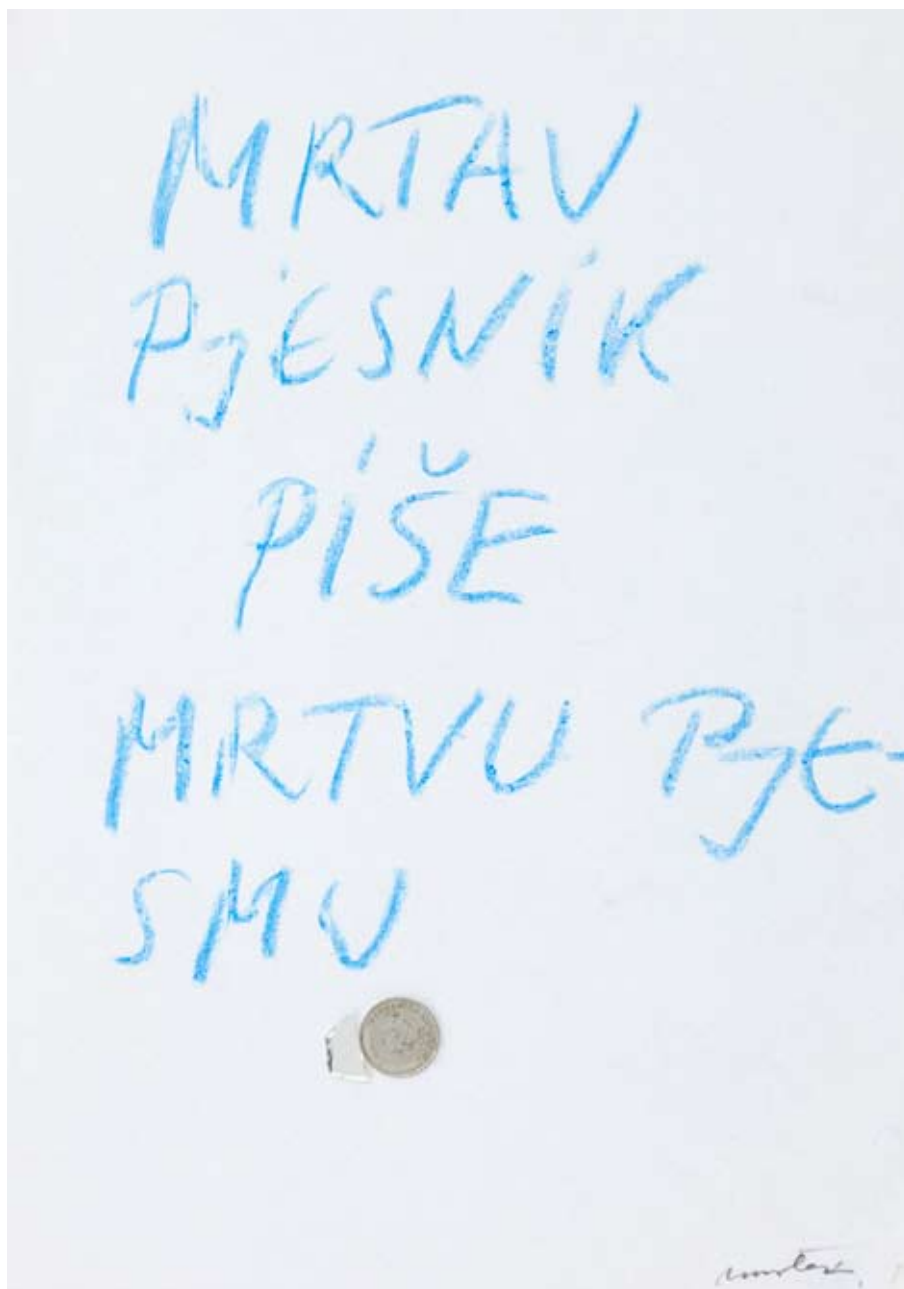 MRTAV
PjESNIK
PIŠE
MRTVU PjE-
SMU